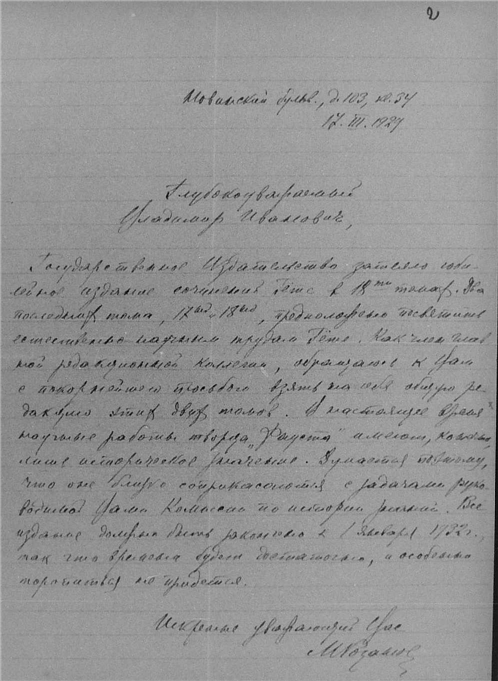 2
Новинский бульв., д. 103, кв. 34
17. III. 1929
Глубокоуважаемый
Владимир Иванович,
Государственное Издательство затеяло юби-
лейное издание сочинений Гете в 18ти томах. Два
последних тома, 17ый и 18ый, предположено посвятить
естественно-научным трудам Гёте. Как член глав-
ной редакционной коллегии, обращаюсь к Вам
с покорнейшею просьбою взять на себя общую ре-
дакцию этих двух томов. В настоящее время
научные работы творца „Фауста“ имеют, конечно,
лишь историческое значение. Думается поэтому,
что они близко соприкасаются с задачами руко-
водимой Вами Комиссии по истории знаний. Всё
издание должно быть закончено к 1 января 1932 г.,
так что времени будет достаточно, и особенно
торопиться не придется.
Искренне уважающий Вас
М Розанов